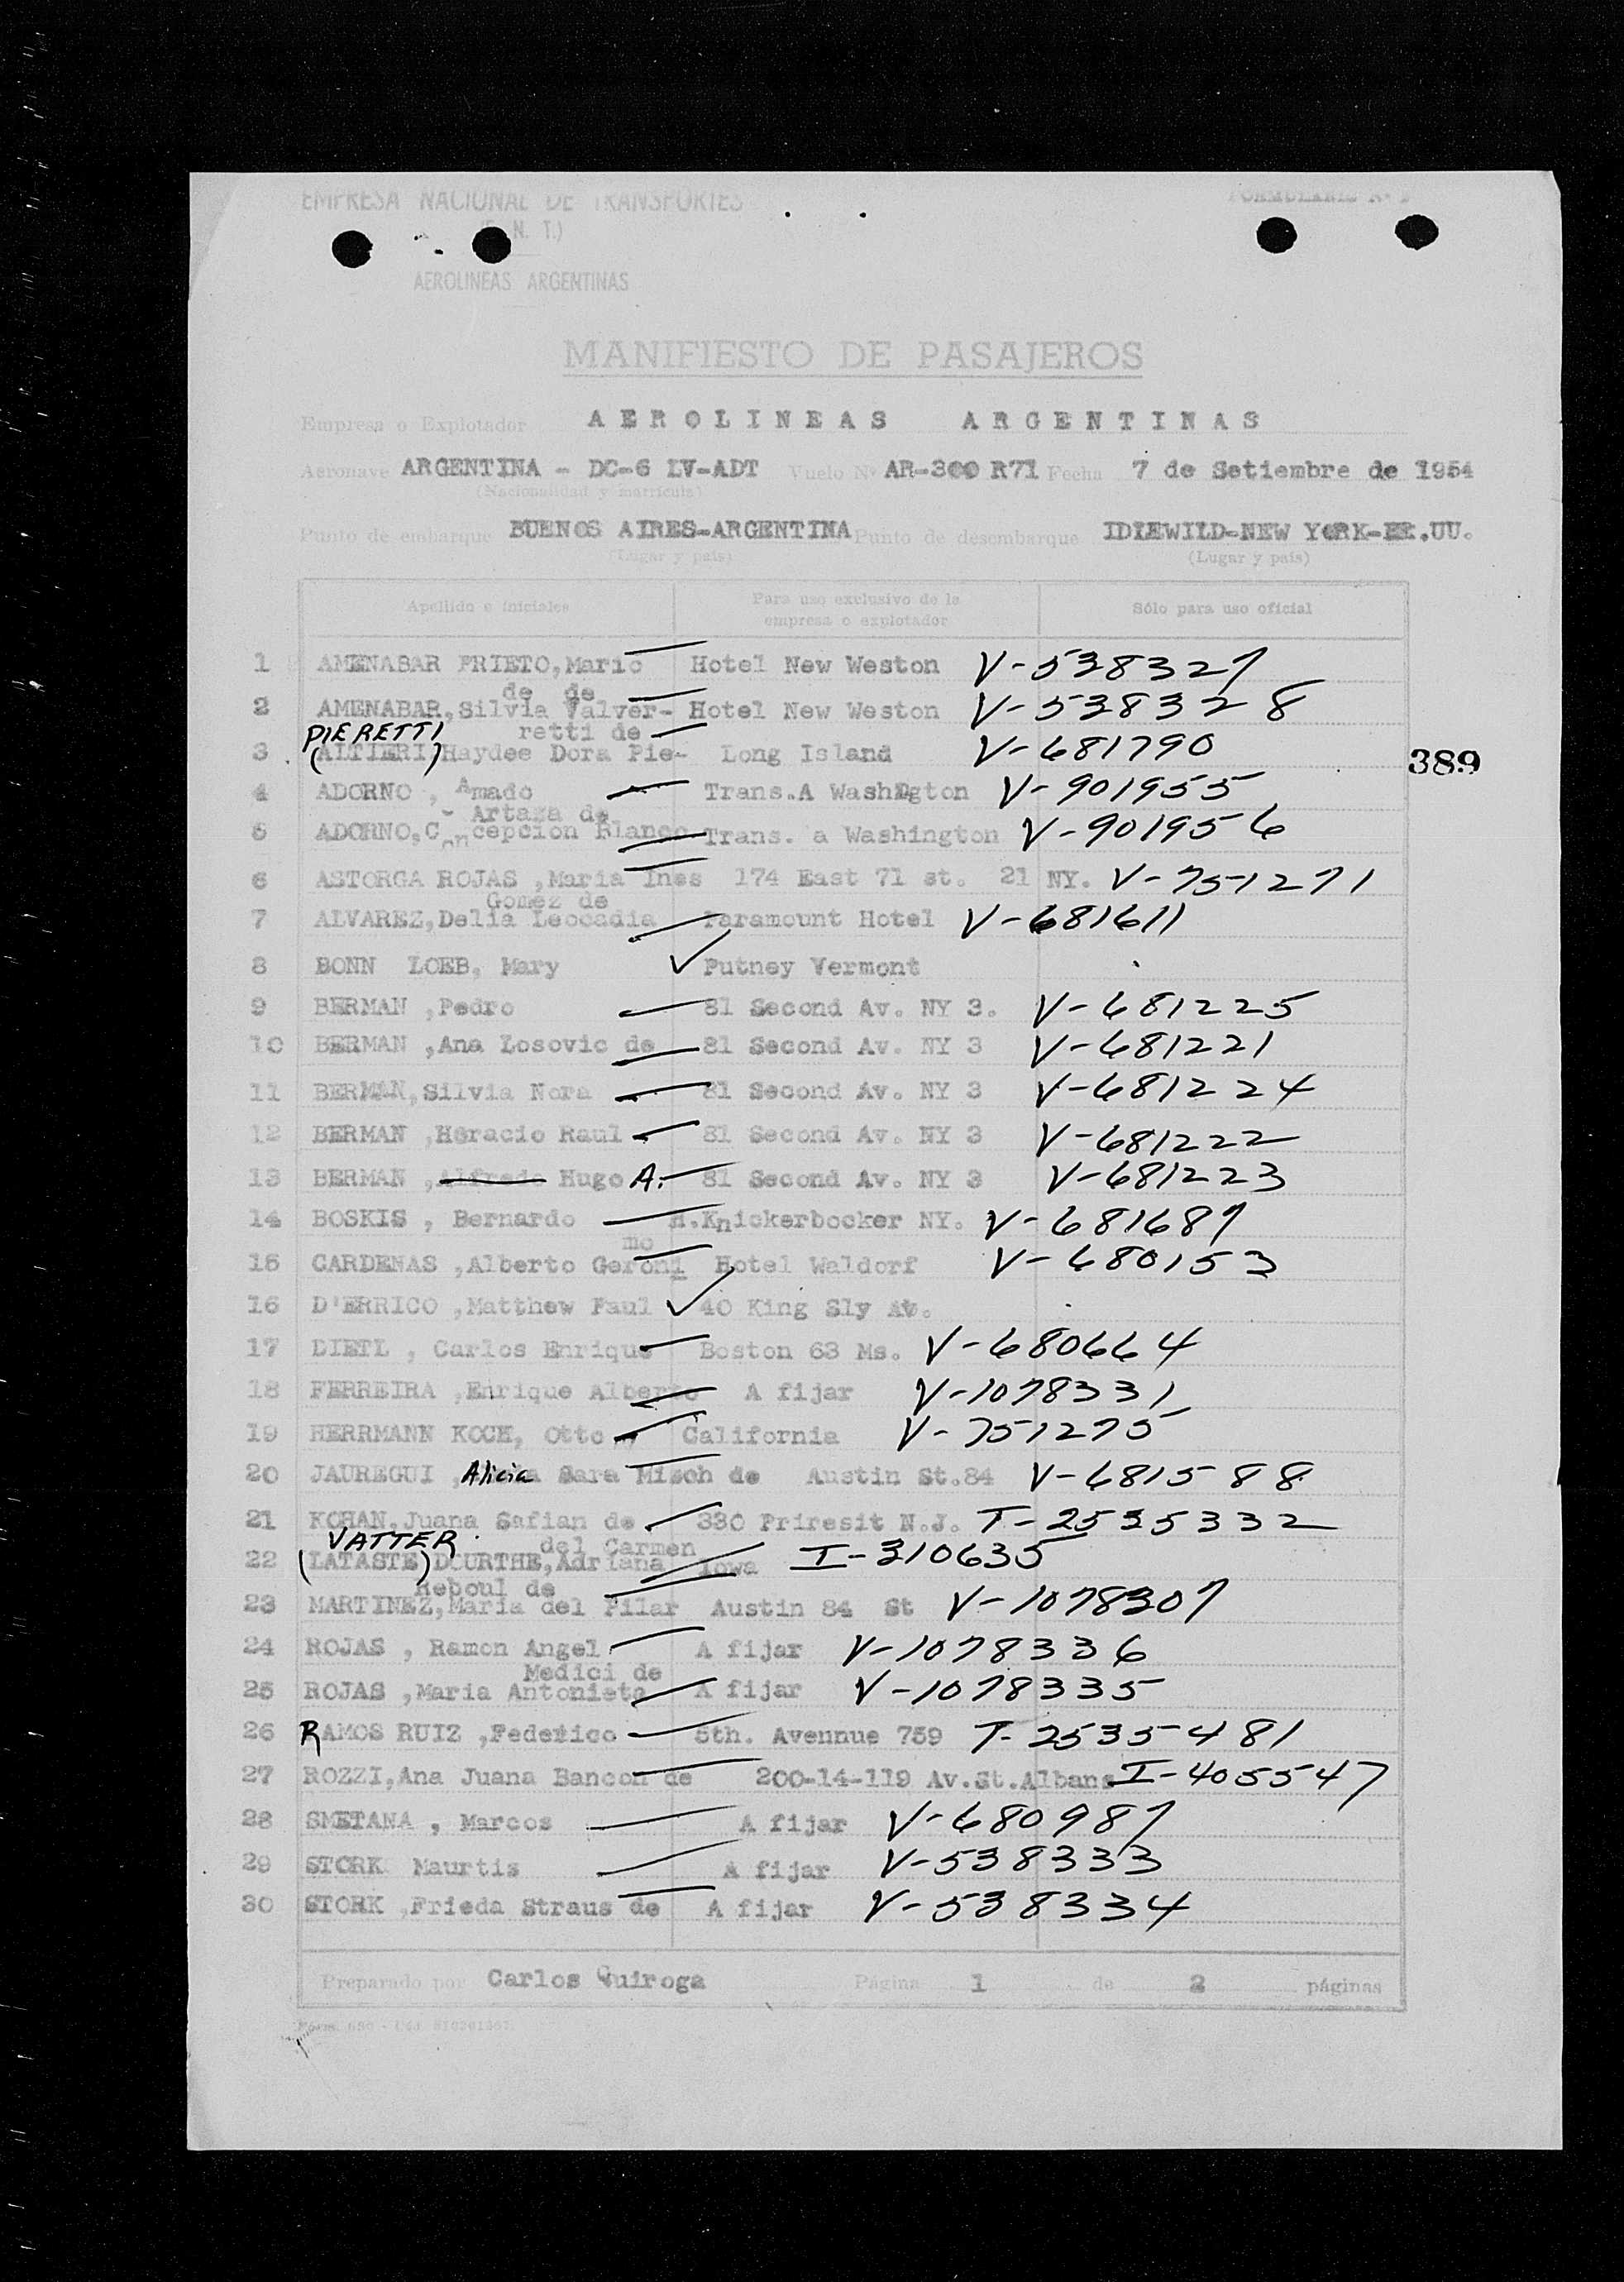 EMPRESA NACIONAL DE TRANSPORTES
(E. N. T.)
AEROLINEAS ARGENTINAS
FORMULARIO Nº
MANIFIESTO DE PASAJEROS
Empresa o Explotador AEROLINEAS ARGENTINAS
Aeronave ARGENTINA - DC-6 LV-ADT Vuelo Nº AR-300 R71 Fecha 7 de Setiembre de 1954
(Nacionalidad y matrícula)
Punto de embarque BUENOS AIRES-ARGENTINA Punto de desembarque IDLEWILD-NEW YORK-EE.UU.
(Lugar y país) (Lugar y país)
Apellido e iniciales Para uso exclusivo de la empresa o explotador Sólo para uso oficial
1 AMENABAR PRIETO, Mario Hotel New Weston V-538327
de de
2 AMENABAR, Silvia Valver- Hotel New Weston V-538328
PIERETTI retti de
3 (ALTIERI) Haydee Dora Pie- Long Island V-681790
389
4 ADORNO, Amado Trans.A Washington V-901955
- Artaza de
5 ADORNO, Concepcion Blanco Trans. a Washington V-901956
6 ASTORGA ROJAS, Maria Ines 174 East 71 st. 21 NY. V-751271
Gomez de
7 ALVAREZ, Delia Leocadia Paramount Hotel V-681611
8 BONN LOEB, Mary Putney Vermont
9 BERMAN, Pedro 81 Second Av. NY 3. V-681225
10 BERMAN, Ana Losovic de 81 Second Av. NY 3 V-681221
11 BERMAN, Silvia Nora 81 Second Av. NY 3 V-681224
12 BERMAN, Horacio Raul 81 Second Av. NY 3 V-681222
13 BERMAN, Alfredo Hugo A. 81 Second Av. NY 3 V-681223
14 BOSKIS, Bernardo H.Knickerbocker NY. V-681687
mo
15 CARDENAS, Alberto Geroni Hotel Waldorf V-680153
16 D'ERRICO, Matthew Paul 40 King Sly Av.
17 DIETL, Carlos Enrique Boston 63 Ms. V-680664
18 FERREIRA, Enrique Alberto A fijar V-1078331
19 HERRMANN KOCH, Otto California V-751275
20 JAUREGUI, Alicia Sara Misch de Austin St.84 V-681588
21 KOHAN, Juana Safian de 330 Friresit N.J. T-2535332
VATTER del Carmen
22 (LATASTE) DOURTHE, Adriana Iowa I-310635
Reboul de
23 MARTINEZ, Maria del Pilar Austin 84 St V-1078307
24 ROJAS, Ramon Angel A fijar V-1078336
Medici de
25 ROJAS, Maria Antonieta A fijar V-1078335
26 RAMOS RUIZ, Federico 5th. Avennue 759 T-2535481
27 ROZZI, Ana Juana Bancon de 200-14-119 Av.St.Albans I-405547
28 SMETANA, Marcos A fijar V-680987
29 STORK Maurtis A fijar V-538333
30 STORK, Frieda Straus de A fijar V-538334
Preparado por Carlos Quiroga Página 1 de 2 páginas